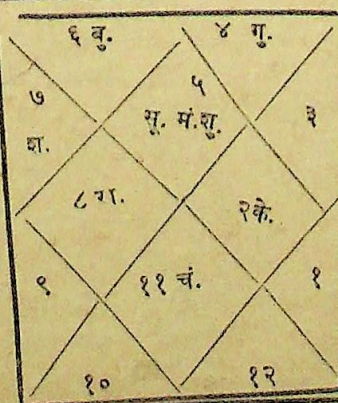 ६ बु.
४ गु.
५
सू. मं.शु.
७
श.
३
८ रा.
२के.
९
११ चं.
१
१०
१२